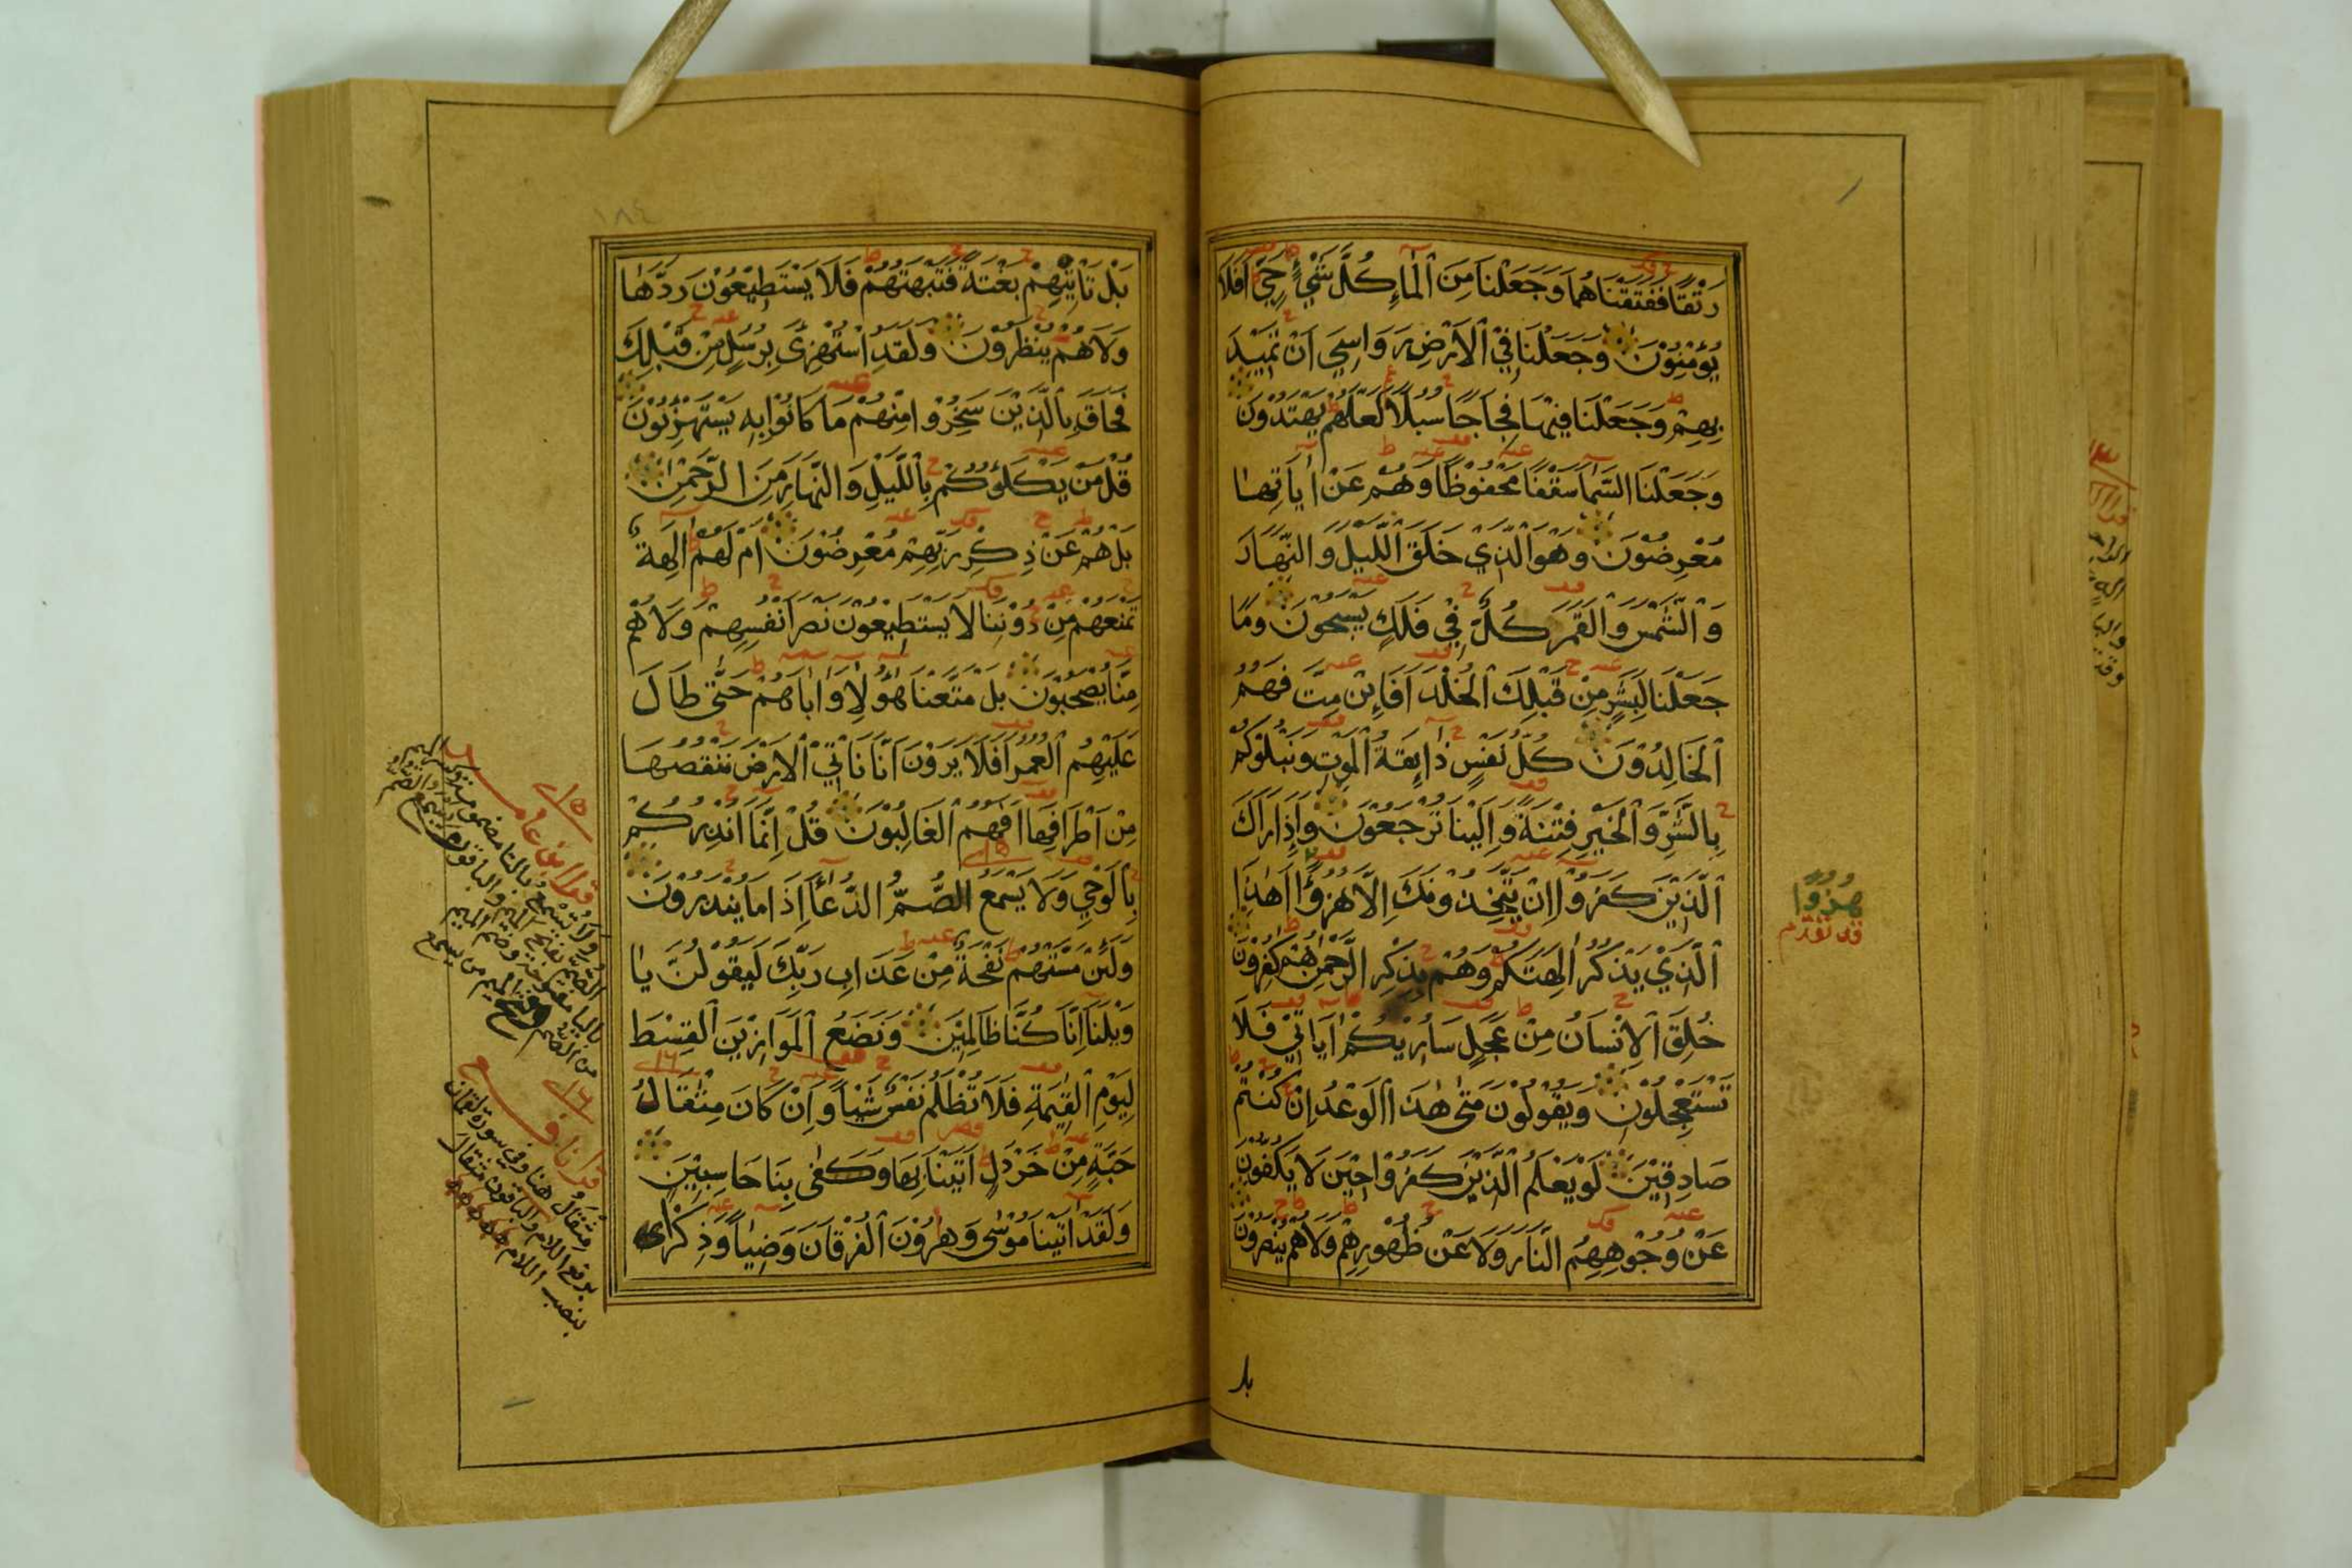 رَتْقًا فَفَتَقْنَاهُمَا وَجَعَلْنَا مِنَ الْمَاءِ كُلَّ شَيْءٍ حَيٍّ أَفَلَا
يُؤْمِنُونَ وَجَعَلْنَا فِي الْأَرْضِ رَوَاسِيَ أَنْ تَمِيدَ
بِهِمْ وَجَعَلْنَا فِيهَا فِجَاجًا سُبُلًا لَعَلَّهُمْ يَهْتَدُونَ
وَجَعَلْنَا السَّمَاءَ سَقْفًا مَحْفُوظًا وَهُمْ عَنْ آيَاتِهَا
مُعْرِضُونَ وَهُوَ الَّذِي خَلَقَ اللَّيْلَ وَالنَّهَارَ
وَالشَّمْسَ وَالْقَمَرَ كُلٌّ فِي فَلَكٍ يَسْبَحُونَ وَمَا
جَعَلْنَا لِبَشَرٍ مِنْ قَبْلِكَ الْخُلْدَ أَفَإِنْ مِتَّ فَهُمُ
الْخَالِدُونَ كُلُّ نَفْسٍ ذَائِقَةُ الْمَوْتِ وَنَبْلُوكُمْ
بِالشَّرِّ وَالْخَيْرِ فِتْنَةً وَإِلَيْنَا تُرْجَعُونَ وَإِذَا رَآكَ
الَّذِينَ كَفَرُوا إِنْ يَتَّخِذُونَكَ إِلَّا هُزُوًا أَهَذَا
الَّذِي يَذْكُرُ آلِهَتَكُمْ وَهُمْ بِذِكْرِ الرَّحْمٰنِ هُمْ كٰفِرُونَ
خُلِقَ الْإِنْسَانُ مِنْ عَجَلٍ سَأُرِيكُمْ آيَاتِي فَلَا
تَسْتَعْجِلُونِ وَيَقُولُونَ مَتَى هٰذَا الْوَعْدُ إِنْ كُنْتُمْ
صَادِقِينَ لَوْ يَعْلَمُ الَّذِينَ كَفَرُوا حِينَ لَا يَكُفُّونَ
عَنْ وُجُوهِهِمُ النَّارَ وَلَا عَنْ ظُهُورِهِمْ وَلَا هُمْ يُنْصَرُونَ
هُزُوًا
قد تقدم
بل
١٨٤
بَلْ تَأْتِيهِمْ بَغْتَةً فَتَبْهَتُهُمْ فَلَا يَسْتَطِيعُونَ رَدَّهَا
وَلَا هُمْ يُنْظَرُونَ وَلَقَدِ اسْتُهْزِئَ بِرُسُلٍ مِنْ قَبْلِكَ
فَحَاقَ بِالَّذِينَ سَخِرُوا مِنْهُمْ مَا كَانُوا بِهِ يَسْتَهْزِئُونَ
قُلْ مَنْ يَكْلَؤُكُمْ بِاللَّيْلِ وَالنَّهَارِ مِنَ الرَّحْمٰنِ
بَلْ هُمْ عَنْ ذِكْرِ رَبِّهِمْ مُعْرِضُونَ أَمْ لَهُمْ آلِهَةٌ
تَمْنَعُهُمْ مِنْ دُونِنَا لَا يَسْتَطِيعُونَ نَصْرَ أَنْفُسِهِمْ وَلَا هُمْ
مِنَّا يُصْحَبُونَ بَلْ مَتَّعْنَا هٰؤُلَاءِ وَآبَاءَهُمْ حَتَّى طَالَ
عَلَيْهِمُ الْعُمُرُ أَفَلَا يَرَوْنَ أَنَّا نَأْتِي الْأَرْضَ نَنْقُصُهَا
مِنْ أَطْرَافِهَا أَفَهُمُ الْغَالِبُونَ قُلْ إِنَّمَا أُنْذِرُكُمْ
بِالْوَحْيِ وَلَا يَسْمَعُ الصُّمُّ الدُّعَاءَ إِذَا مَا يُنْذَرُونَ
وَلَئِنْ مَسَّتْهُمْ نَفْحَةٌ مِنْ عَذَابِ رَبِّكَ لَيَقُولُنَّ يَا
وَيْلَنَا إِنَّا كُنَّا ظَالِمِينَ وَنَضَعُ الْمَوَازِينَ الْقِسْطَ
لِيَوْمِ الْقِيٰمَةِ فَلَا تُظْلَمُ نَفْسٌ شَيْئًا وَإِنْ كَانَ مِثْقَالُ
حَبَّةٍ مِنْ خَرْدَلٍ أَتَيْنَا بِهَا وَكَفَى بِنَا حَاسِبِينَ
وَلَقَدْ آتَيْنَا مُوسَى وَهٰرُونَ الْفُرْقَانَ وَضِيَاءً وَذِكْرَى
١٥
قرا ابن عامر
ولا تسمع بالتا مضمومة وكسر الميم
الصم بفتح الميم والباقون
باليا مفتوحة وضم الميم
من الصم وفتح الميم من يسمع
١٦
قرا نافع
مثقال هنا وفي سورة لقمان
برفع اللام والباقون مثقال
بنصب اللام